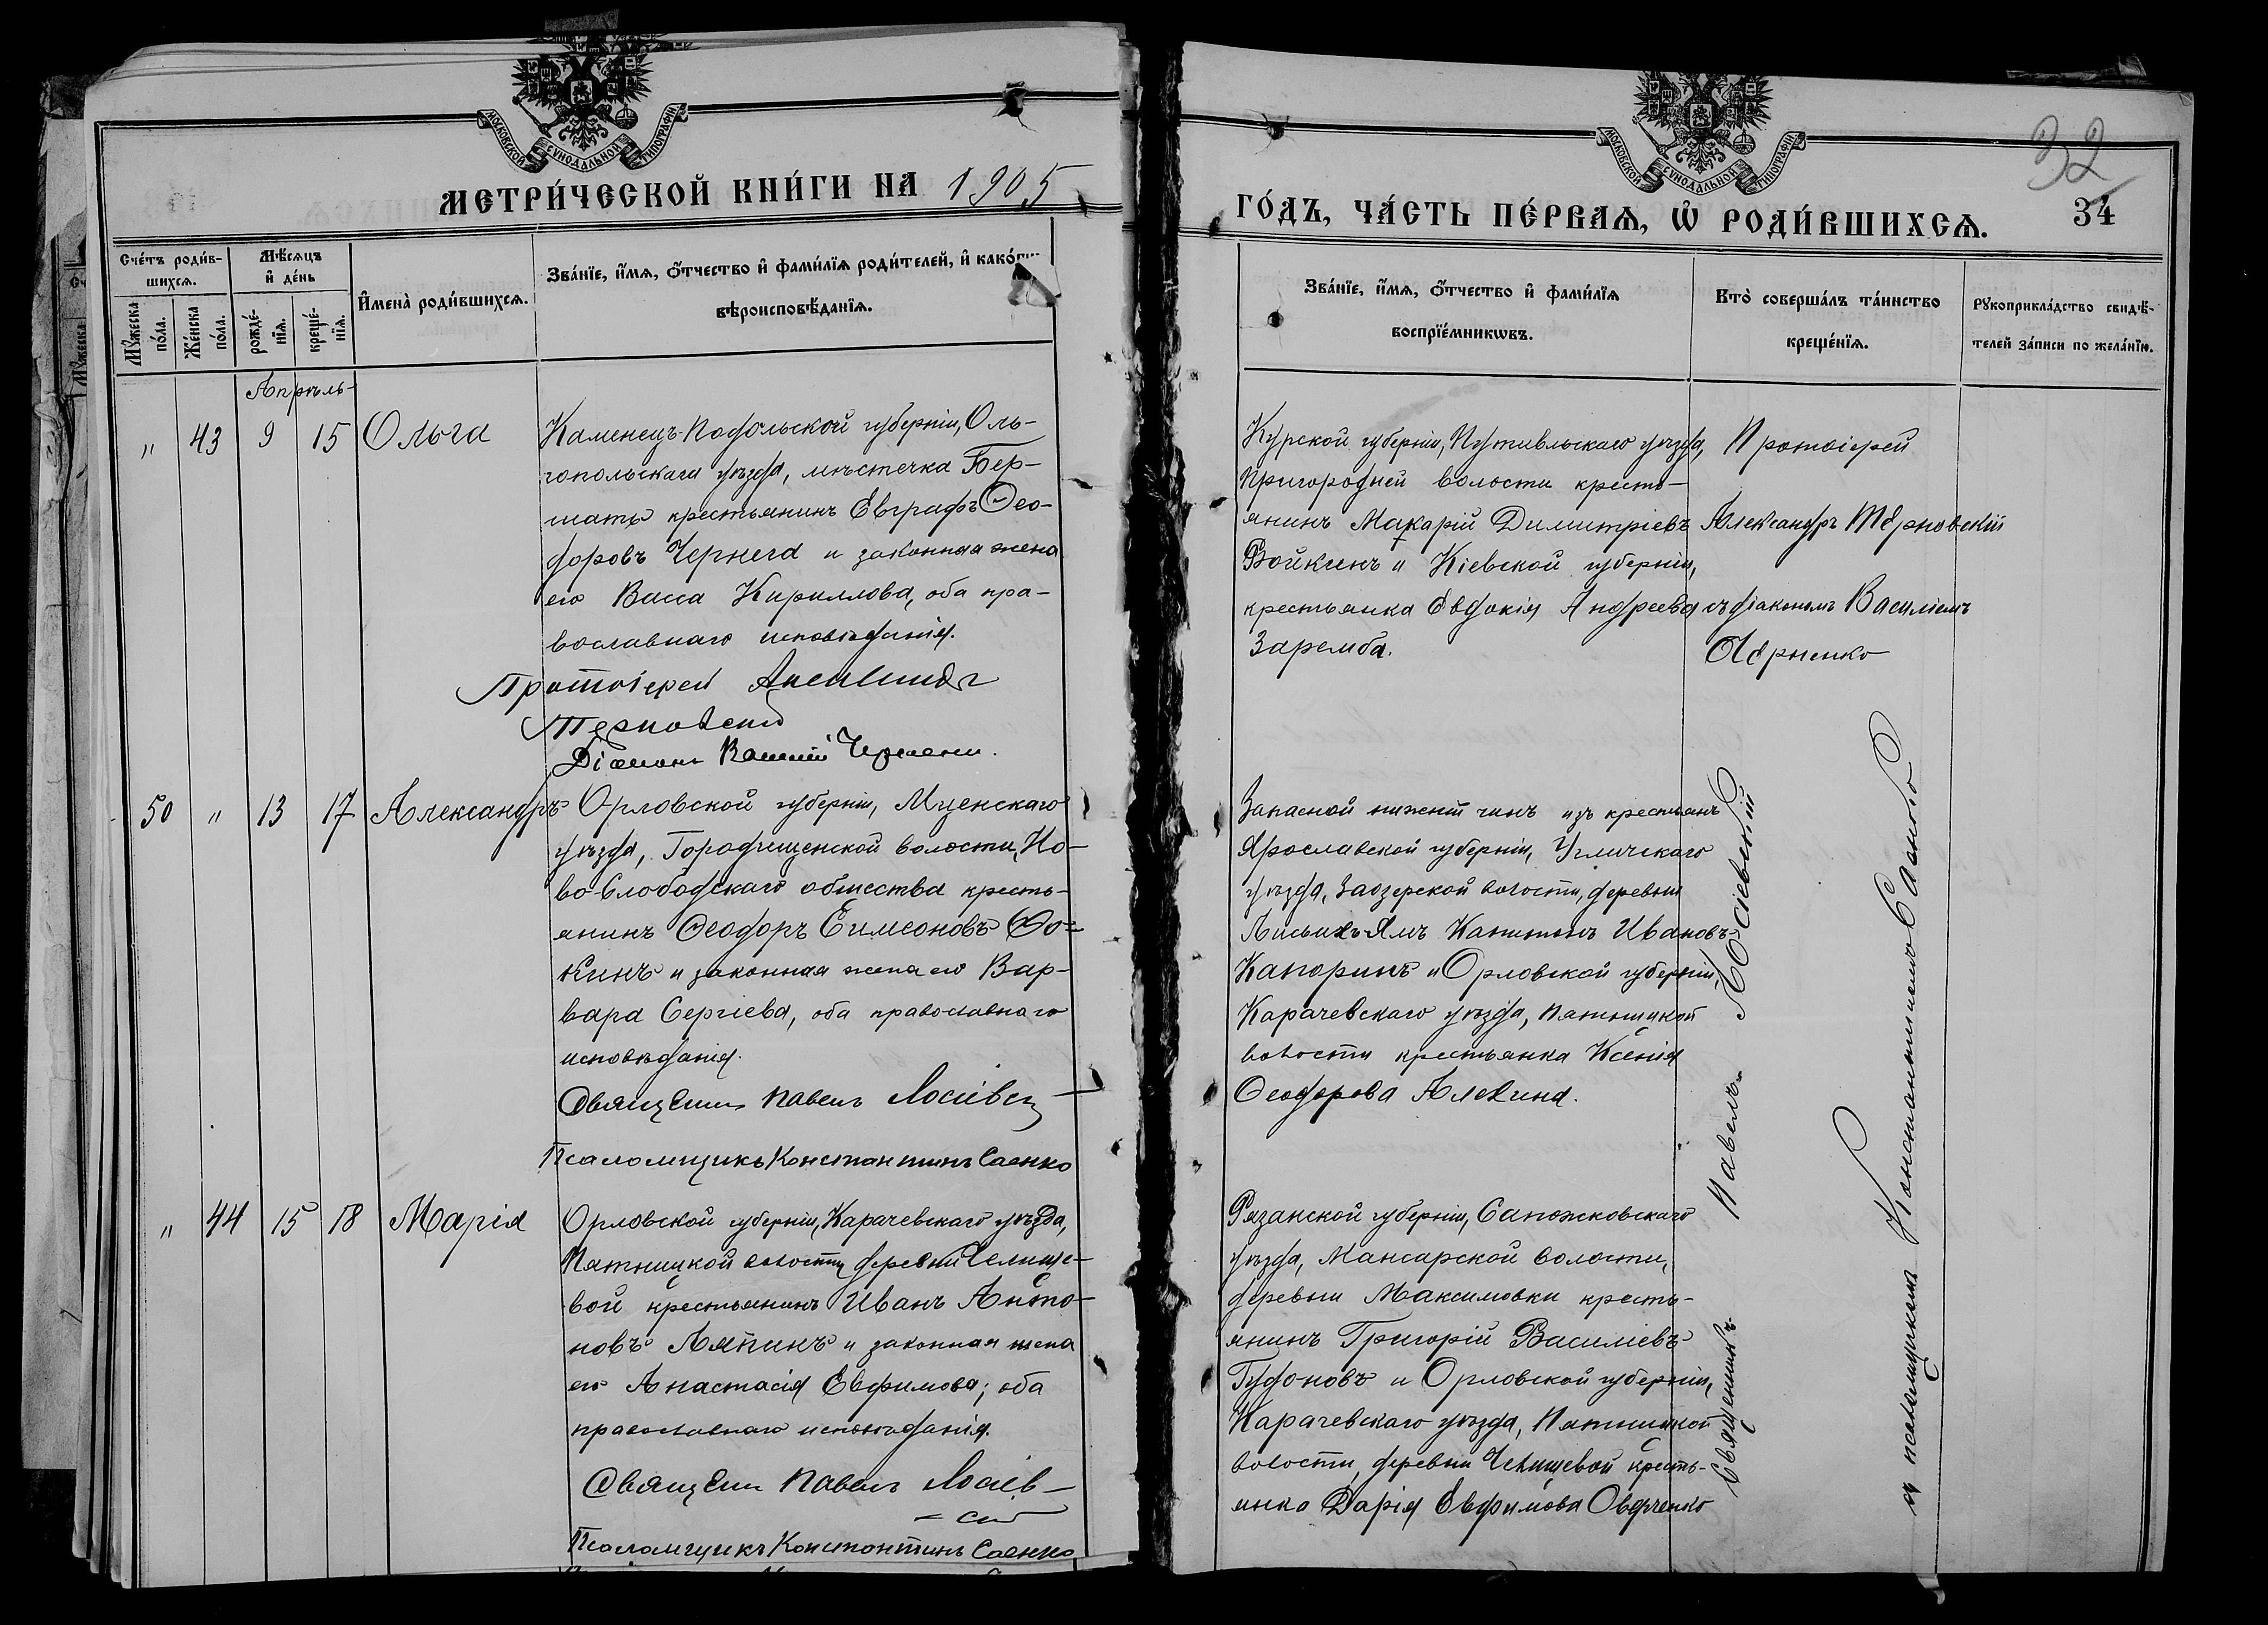 МОСКОВСКОЙ СѴНОДАЛЬНОЙ ТИПОГРАФІИ
МЕТРИ́ЧЕСКОЙ КНИ́ГИ НА 1905
Сче́тъ роди́в-
шихсѧ.
Мѣ́сѧцъ
и҆ де́нь
Мꙋ́жеска
по́ла.
Же́нска
по́ла.
рожде́-
нїѧ.
креще́-
нїѧ.
И҆мена̀ роди́вшихсѧ.
Зва́нїе, и҆́мѧ, ѻ҆́тчество и҆ фами́лїѧ роди́телей, и҆ како́гѡ
вѣроисповѣ́данїѧ.
Апрѣль
" 43 9 15 Ольга
Каменецъ-Подольской губерніи, Оль-
гопольскаго уѣзда, мѣстечка Бер-
шать крестьянинъ Евграфъ Ѳео-
доровъ Чернега и законная жена
его Васса Кириллова, оба пра-
вославнаго исповѣданія.
Протоіерей Александръ
Терновскій
Діаконъ Василій
50 " 13 17 Александръ
Орловской губерніи, Мценскаго
уѣзда, Городищенской волости, Но-
во-Слободскаго общества кресть-
янинъ Ѳеодоръ Симеоновъ Фо-
кинъ и законная жена его Вар-
вара Сергіева, оба православнаго
исповѣданія.
Священникъ Павелъ Лосіевскій
Псаломщикъ Константинъ Саенко
" 44 15 18 Марія
Орловской губерніи, Карачевскаго уѣзда,
Пятницкой волости деревни Челище-
вой крестьянинъ Иванъ Анто-
новъ Ляпинъ и законная жена
его Анастасія Евфимова; оба
православнаго исповѣданія.
Священ Павелъ Лосіев-
скій
Псаломщикъ Константинъ Саенко
МОСКОВСКОЙ СѴНОДАЛЬНОЙ ТИПОГРАФІИ
32
ГО́ДЪ, ЧА́СТЬ ПЕ́РВАѦ, Ѡ҆ РОДИ́ВШИХСѦ. 34
Зва́нїе, и҆́мѧ, ѻ҆́тчество и҆ фами́лїѧ
воспрїе́мникѡвъ.
Кто̀ соверша́лъ та́инство
креще́нїѧ.
Рꙋкоприкла́дство свидѣ́-
телей за́писи по жела́нїю.
Курской губерніи, Путивльскаго уѣзда,
Пригородней волости кресть-
янинъ Макарій Димитріевъ
Войкинъ и Кіевской губерніи,
крестьянка Евдокія Андреева
Заремба.
Протоіерей
Александръ Терновскій
съ діакономъ Василіемъ
Запасной нижній чинъ изъ крестьянъ
Ярославской губерніи, Угличскаго
уѣзда, Заозерской волости, деревни
Лисьихъ-Ямъ Капитонъ Ивановъ
Капоринъ и Орловской губерніи,
Карачевскаго уѣзда, Пятницкой
волости крестьянка Ксенія
Ѳеодорова Алехина.
Рязанской губерніи, Сапожковскаго
уѣзда, Мансарской волости,
деревни Максимовки кресть-
янинъ Григорій Василіевъ
и Орловской губерніи,
Карачевскаго уѣзда, Пятницкой
волости, деревни Челищевой кресть-
янка Дарія Евфимова Овдченко
Священникъ Павелъ Лосіевскій
и псаломщикомъ Константиномъ Саенко